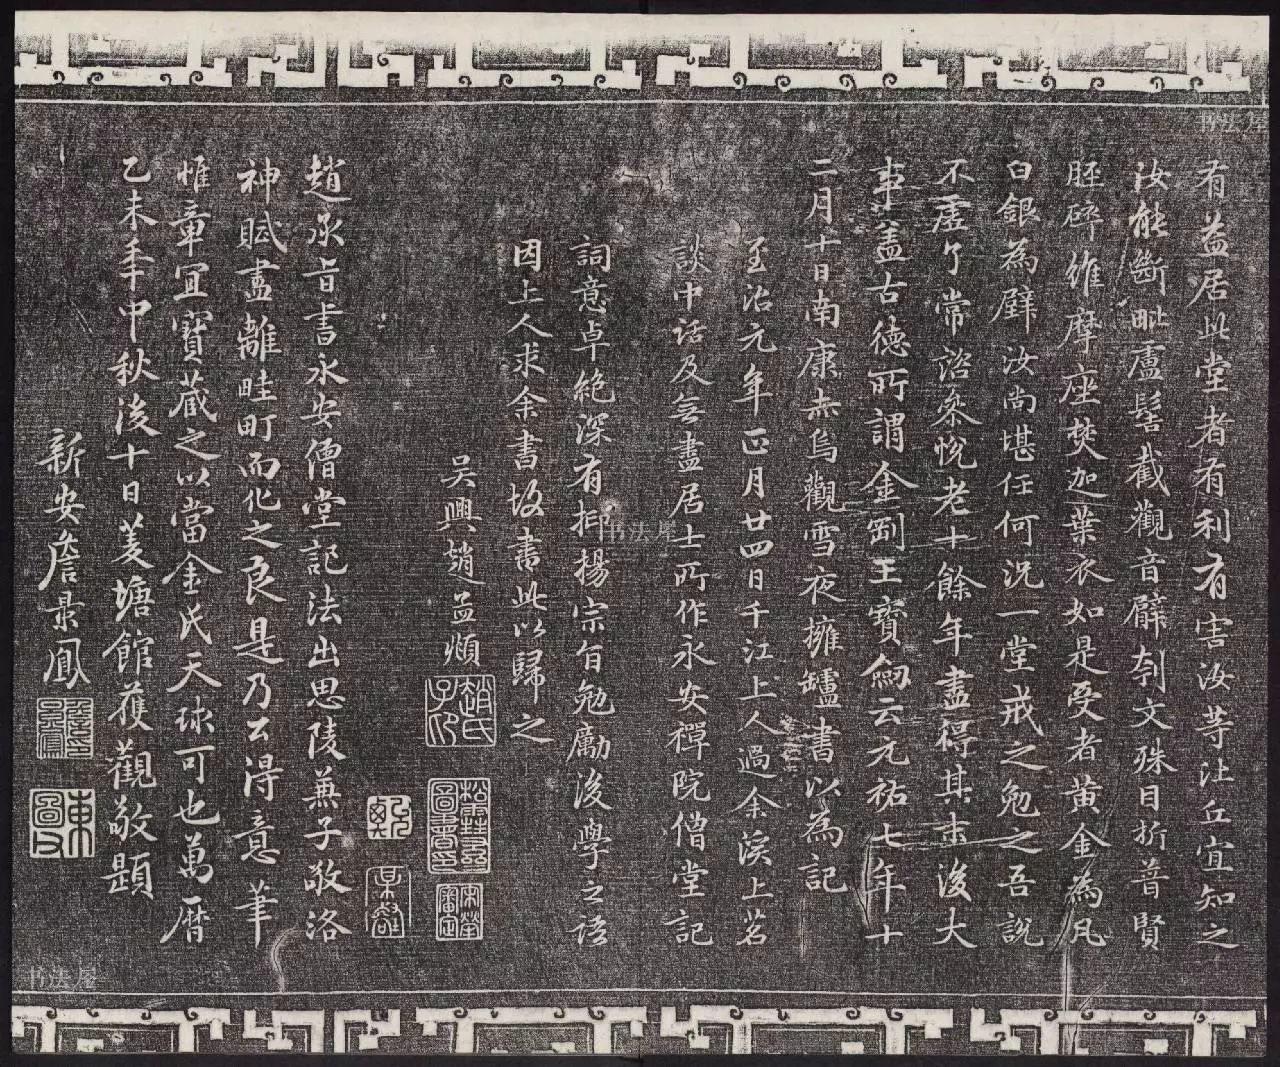 有益居此堂者有利有害汝等比丘宜知之
汝能斷毗盧髻截觀音臂刳文殊目折普賢
脛碎維摩座焚迦葉衣如是受者黃金為瓦
白銀為壁汝尚堪任何況一堂戒之勉之吾說
不虛了常諮參悅老十餘年盡得其末後大
事蓋古德所謂金剛王寶劒云元祐七年十
二月十日南康赤烏觀雪夜擁爐書以為記
至治元年正月廿四日千江上人過余溪上茗
談中話及無盡居士所作永安禪院僧堂記
詞意卓絕深有抑揚宗旨勉勵後學之語
因上人求余書故書此以歸之
吳興趙孟頫
趙氏子印
松雪齋圖書印
宋犖審定
趙承旨書永安僧堂記法出思陵兼子敬洛
神賦盡離畦町而化之良是乃公得意筆
惟章宜寶藏之以當金氏天球可也萬曆
乙未年中秋後十日菱塘館獲觀敬題
新安詹景鳳
東圖父
书法屋
书法屋
书法屋